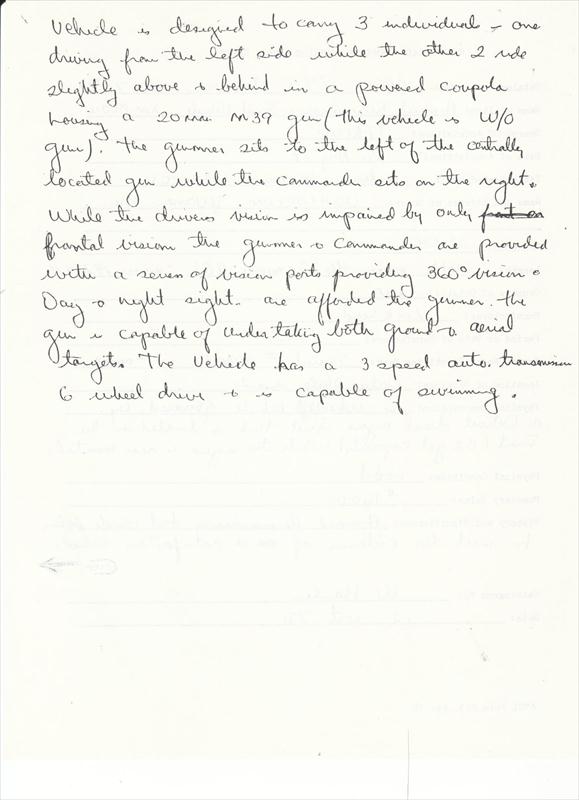 Vehicle is designed to carry 3 individuals - one
driving from the left side while the other 2 ride
slightly above & behind in a powered coupola
housing a 20mm M39 gun (this vehicle is W/O
gun). The gunner sits to the left of the centrally
located gun while the commander sits on the right.
While the drivers vision is impaired by only
frontal vision the gunner & commander are provided
with a series of vision ports providing 360° vision.
Day & night sight are afforded the gunner. The
gun is capable of undertaking both ground & aerial
targets. The vehicle has a 3 speed auto. transmission
6 wheel drive & is capable of swimming.